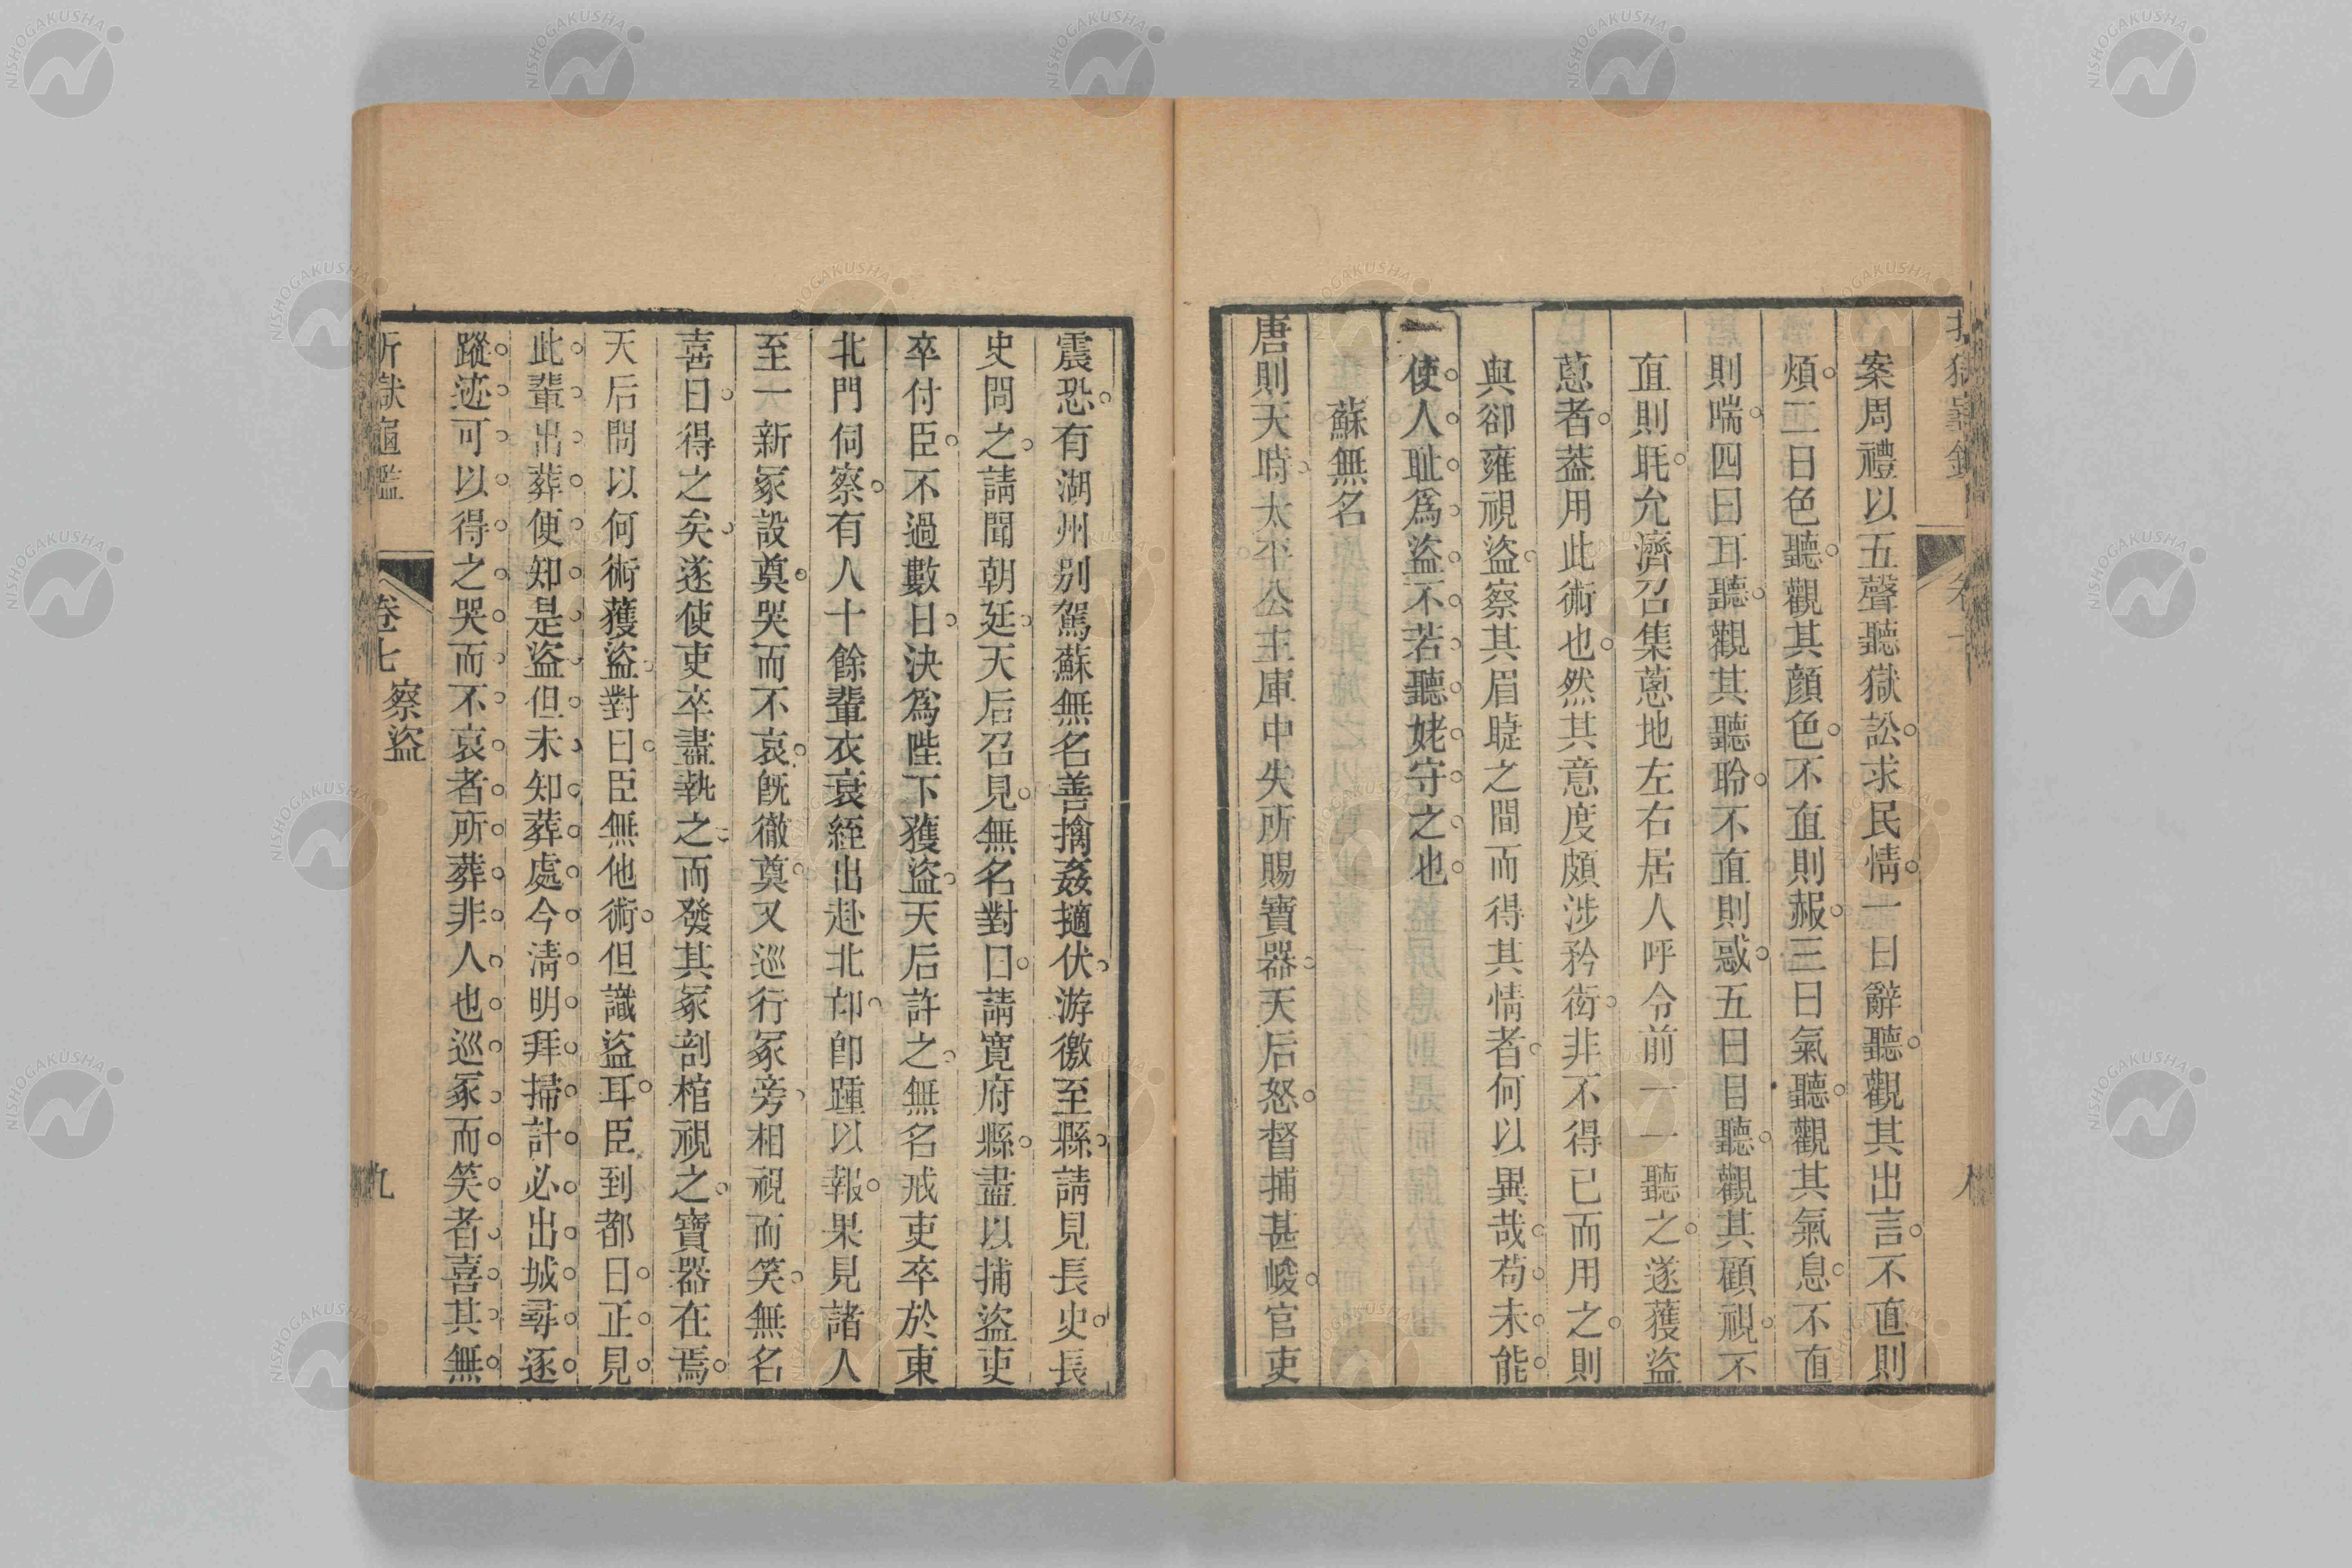 案周禮以五聲聽獄訟求民情一曰辭聽觀其出言不直則
煩二曰色聽觀其顔色不直則赧三曰氣聽觀其氣息不直
則喘四曰耳聽觀其聽聆不直則惑五曰目聽觀其顧視不
直則眊允濟召集蔥地左右居人呼令前一一聽之遂獲盜
蔥者葢用此術也然其意度頗涉矜衒非不得已而用之則
與卻雍視盜察其眉睫之間而得其情者何以異哉苟未能
使人耻爲盜不若聽姥守之也
蘇無名
唐則天時太平公主庫中失所賜寶器天后怒督捕甚峻官吏
震恐有湖州别駕蘇無名善擒姦擿伏游徼至縣請見長史長
史問之請聞朝廷天后召見無名對曰請寬府縣盡以捕盜吏
卒付臣不過數日決爲陛下獲盜天后許之無名戒吏卒於東
北門伺察有人十餘輩衣衰絰出赴北邙卽踵以報果見諸人
至一新冢設奠哭而不哀旣徹奠又巡行冢旁相視而笑無名
喜曰得之矣遂使吏卒盡執之而發其冢剖棺視之寶器在焉
天后問以何術獲盜對曰臣無他術但識盜耳臣到都日正見
此輩出葬便知是盜但未知葬處今淸明拜掃計必出城尋逐
蹤迹可以得之哭而不哀者所葬非人也巡冢而笑者喜其無
折獄龜鑑 卷七 察盜 九
NISHOGAKUSHA